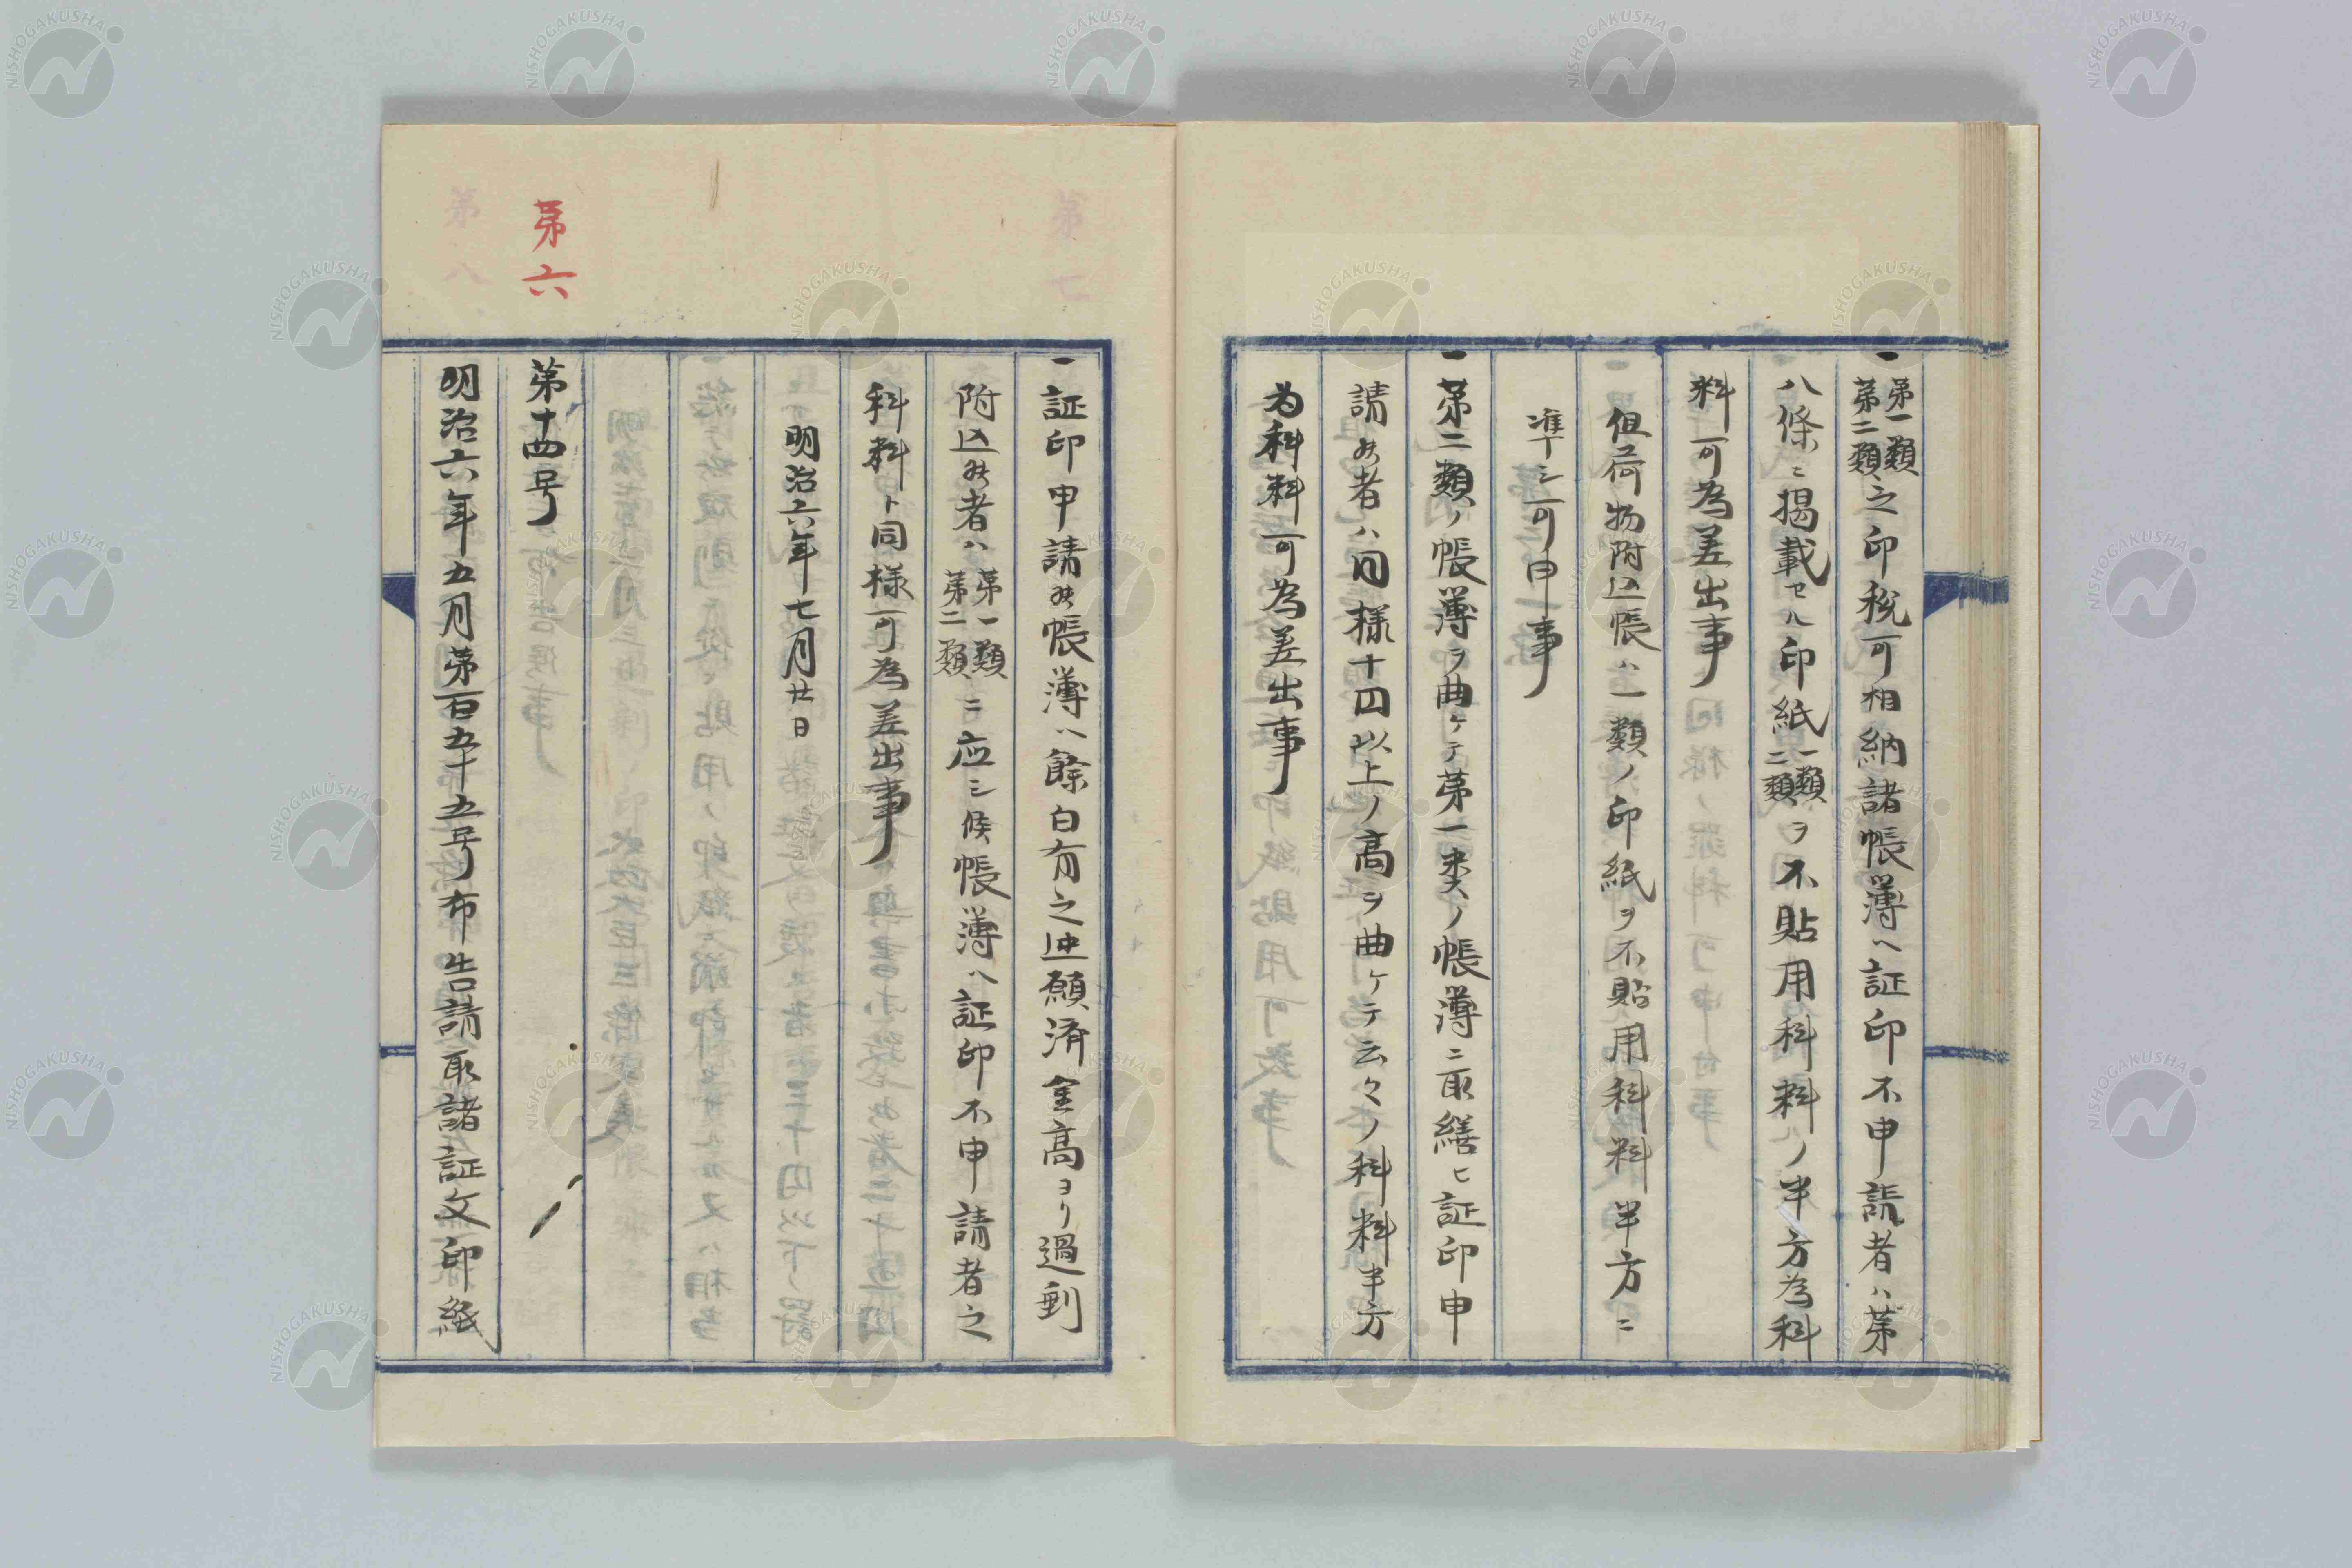 一第一類第二類之印税可相納諸帳簿ヘ証印不申請者ハ第
八條ニ掲載セル印紙一類二類ヲ不貼用科料ノ半方為科
料可為差出事
但荷物附込帳ハ一類ノ印紙ヲ不貼用科料半方ニ
準シ可申事
一第二類ノ帳簿ヲ曲ケテ第一类ノ帳簿ニ取繕ヒ証印申
請ル者ハ同様十円以上ノ高ヲ曲ケテ云々ノ科料半方
为科料可為差出事
一証印申請ル帳簿ハ餘白有之迚願済金高ヨリ過剰
附込ル者ハ第一類第二類ニ応シ候帳簿ハ証印不申請者之
科料ト同様可為差出事
明治六年七月廿日
第六
第十四号
明治六年五月第百五十五号布告請取諸証文印紙